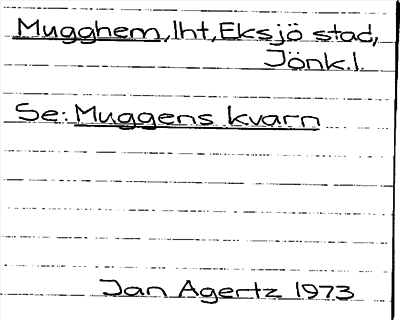 Mugghem, lht, Eksjö stad,
Jönk.l.
Se: Muggens kvarn
Jan Agertz 1973